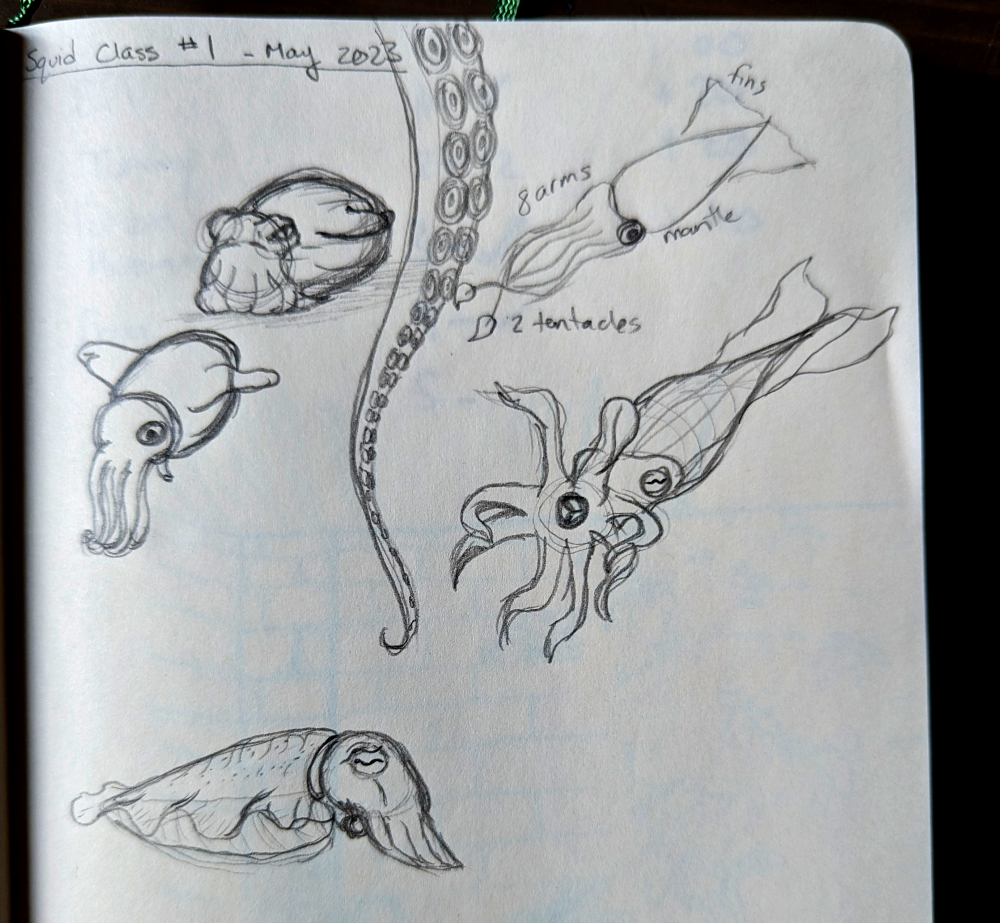 Squid Class #1 - May 2023
fins
8 arms
mantle
2 tentacles